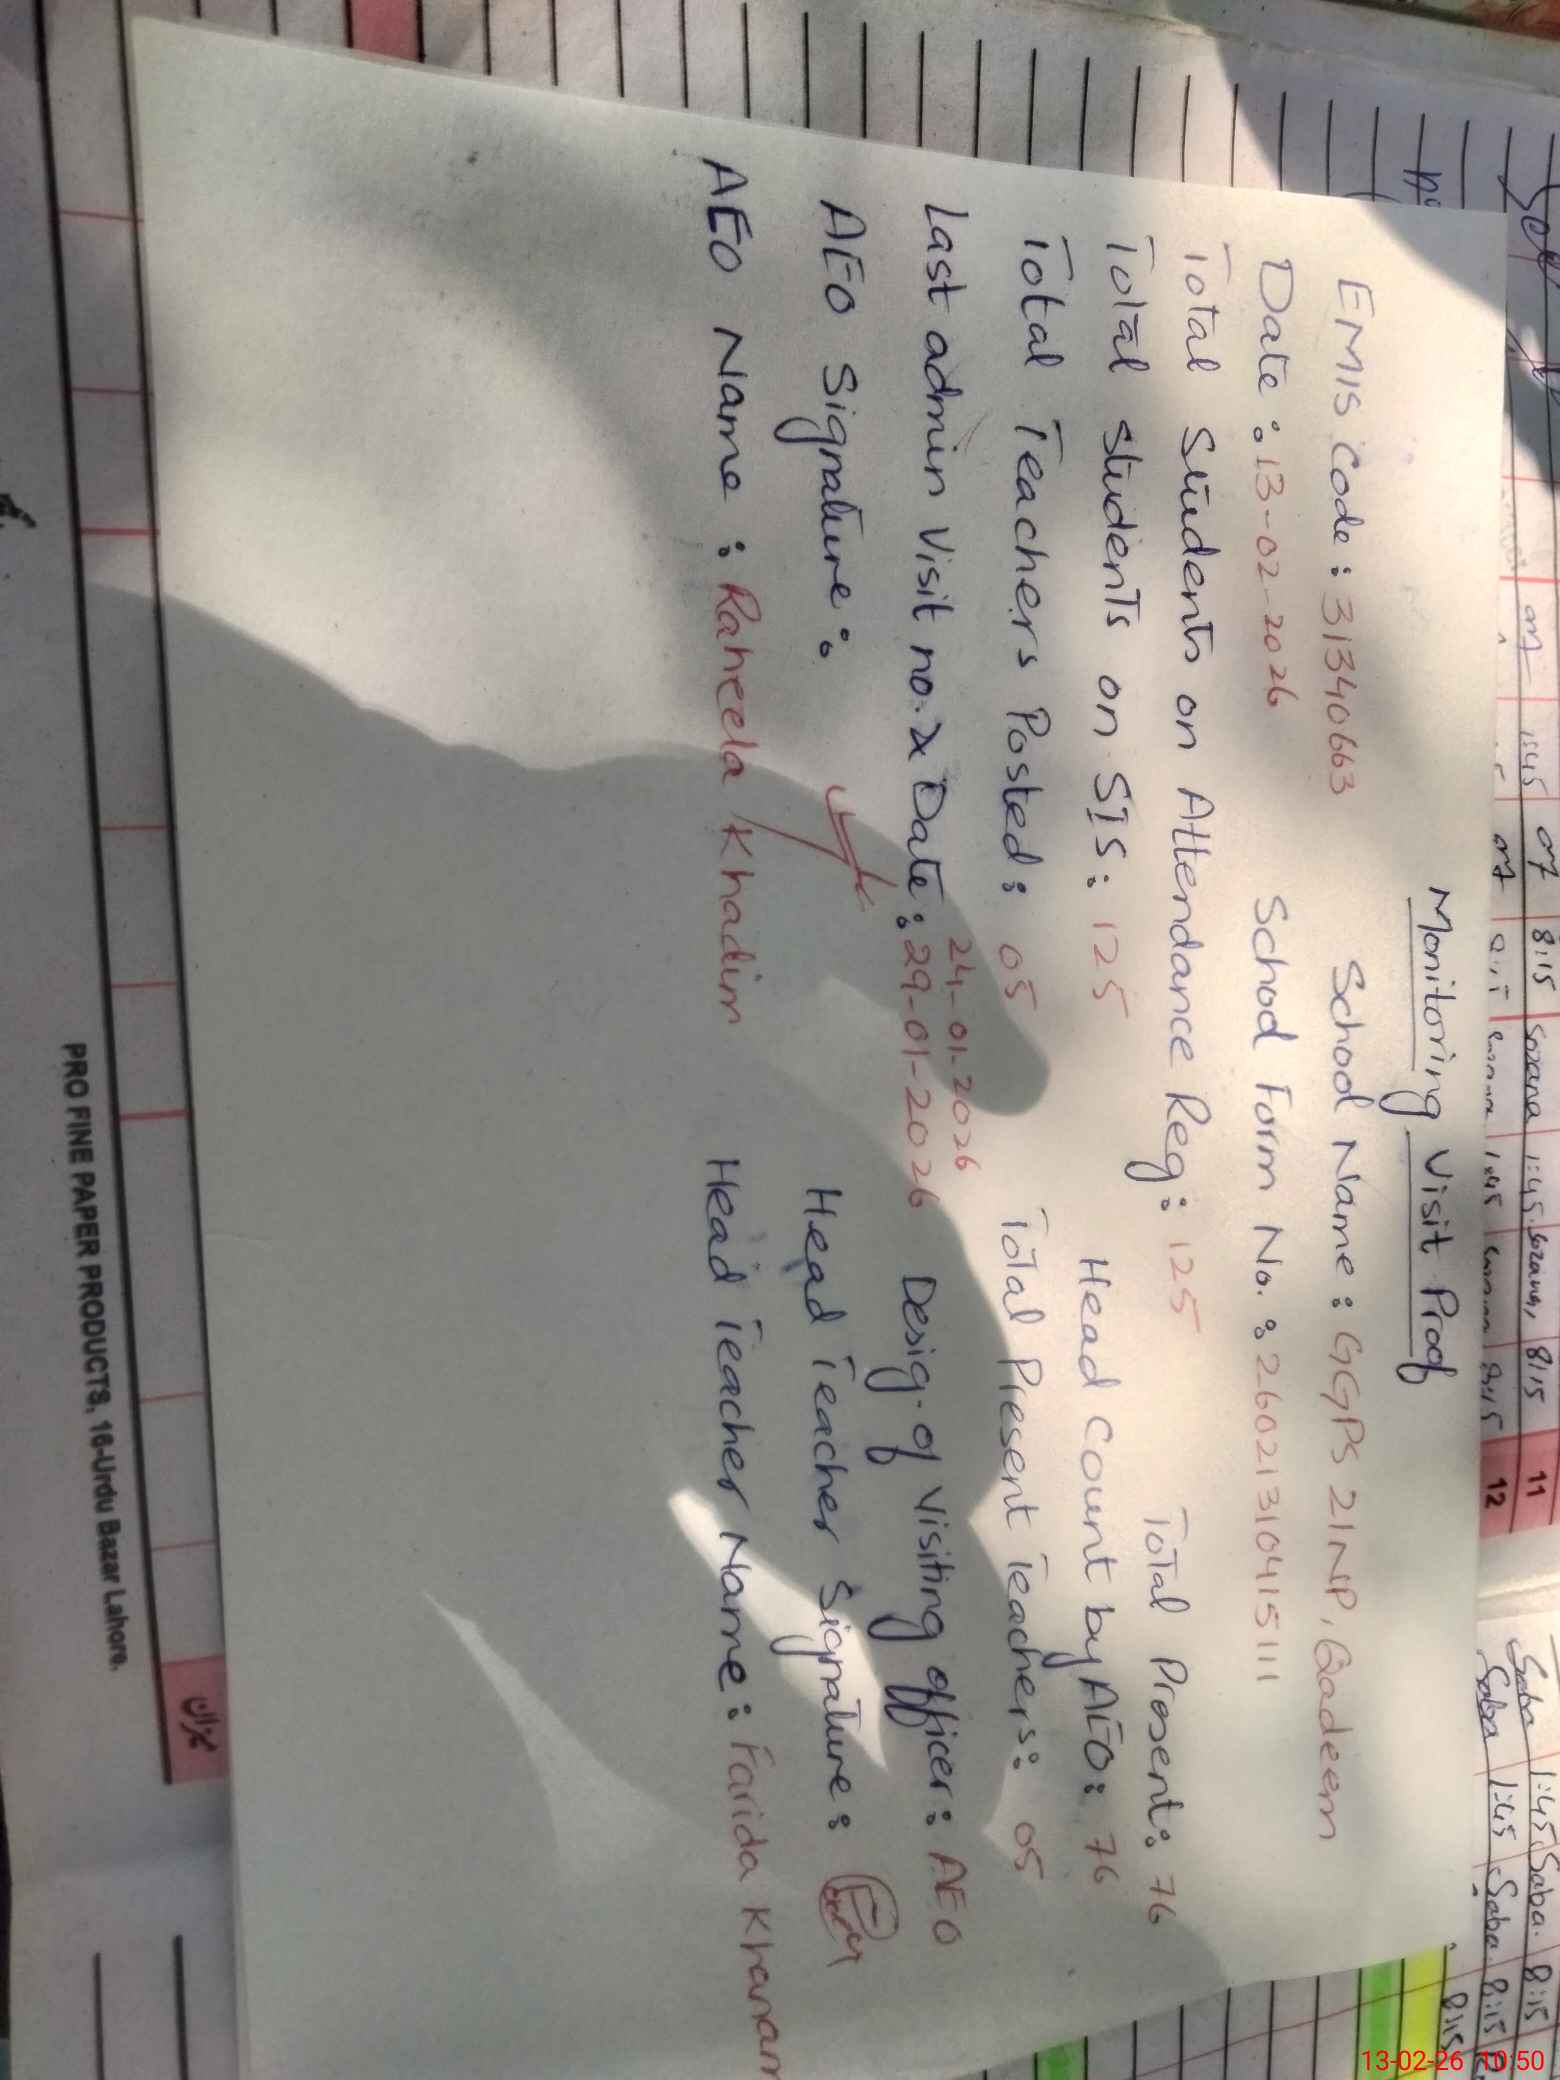 Monitoring Visit Proof
EMIS Code: 31340663 School Name: GGPS 21NP, Qadeem
Date: 13-02-2026 School Form No.: 26021310415111
Total Students on Attendance Reg: 125 Total Present: 76
Total students on SIS: 125 Head Count by AEO: 76
Total Teachers Posted: 05 Total Present Teachers: 05
24-01-2026
Last admin Visit no. 2 Date: 29-01-2026 Desig. of Visiting officer: AEO
AEO Signature: Head Teacher Signature:
AEO Name: Raheela Khadim Head Teacher Name: Farida Khanam
PRO FINE PAPER PRODUCTS, 16-Urdu Bazar Lahore.
میزان
07 8:15 Sozana 1:45 8:15 11
1:45 12
Saba 1:45 Saba 8:15
Saba 1:45 Saba 8:15
8:15
13-02-26 10:50